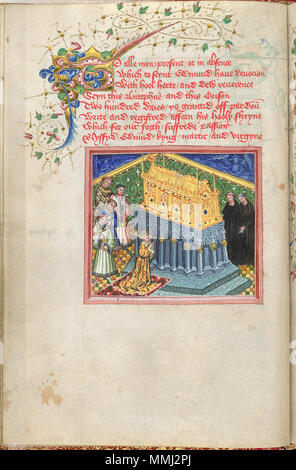 To alle men present or in absence
Which to seynt Edmund have deuocion
With hool herte and dew reuerence
Seyn this Antephne and this Orison
Two hundred daies ys grantid off pardoun
Wrete and registred afforn his hooly shryne
Which for our feith suffrede passion
Blyssyd Edmund kyng martir and virgyne
alamy
www.alamy.com - MMJ2PJ